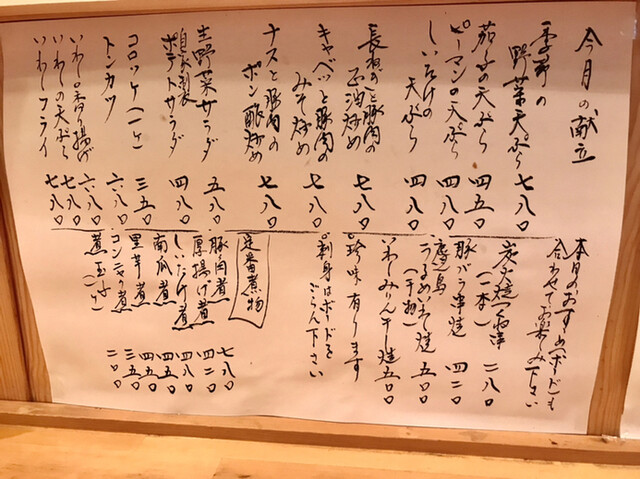 今月の献立
季節の
野菜天ぷら 七八〇
茄子の天ぷら 四五〇
ピーマンの天ぷら 四八〇
しいたけの
天ぷら 四八〇
長ねぎと豚肉の
正油炒め 七八〇
キャベツと豚肉の
みそ炒め 七八〇
ナスと豚肉の
ポン酢炒め 七八〇
生野菜サラダ 五八〇
自家製
ポテトサラダ 四八〇
コロッケ(一ヶ) 三五〇
トンカツ 六八〇
いわしの香り揚げ 六八〇
いわしの天ぷら 七八〇
いわしフライ 七八〇
本日のおすすめ(ボード)も
合わせてお楽しみ下さい
炭火焼つくね串
(一本) 二八〇
豚バラ串焼 四二〇
うるめいわし焼
(干物) 五〇〇
いわしみりん干し焼 五〇〇
珍味有ります
刺身はボードを
ごらん下さい
定番煮物
豚肉煮 七八〇
厚揚げ煮 四二〇
しいたけ煮 四八〇
南瓜煮 四五〇
里芋煮 四五〇
コンニャク煮 三五〇
煮玉子(一ヶ) 二〇〇